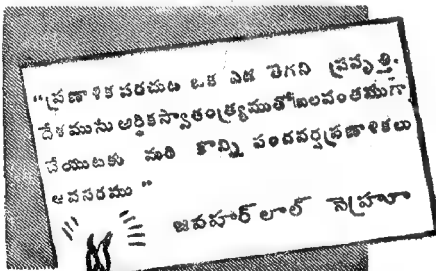 “ప్రణాళిక పరచుట ఒక ఎడ తెగని ప్రవృత్తి.
దేశమును ఆర్థికస్వాతంత్ర్యముతో బలవంతముగా
చేయుటకు మరి కొన్ని పందవర్షప్రణాళికలు
అవసరము”
జవహర్ లాల్ నెహ్రూ